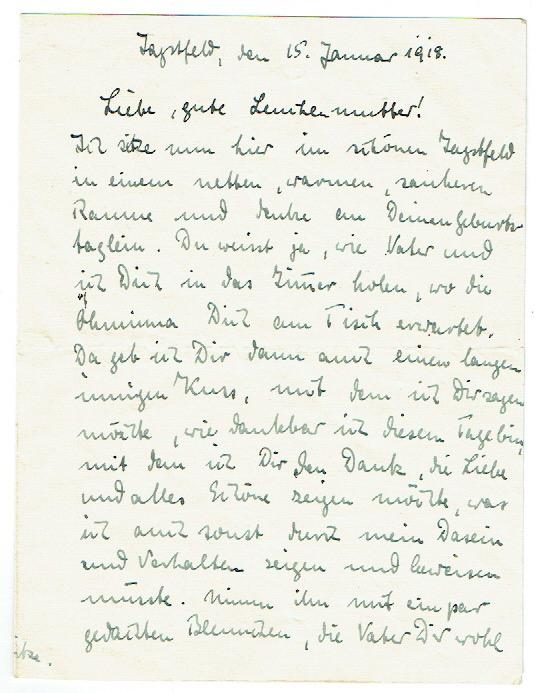 Jagstfeld, den 15. Januar 1918.
Liebe, gute Lenchenmutter!
Ich sitze nun hier im schönen Jagstfeld
in einem netten, warmen, sauberen
Raume und denke an Deinen Geburts-
taglein. Du weisst ja, wie Vater und
ich Dich in das Zimmer holen, wo die
Ohmima Dich am Tisch erwartet.
Da geb ich Dir dann auch einen langen
innigen Kuss, mit dem ich Dir sagen
möchte, wie dankbar ich diesem Tage bin,
mit dem ich Dir den Dank, die Liebe
und alles Schöne zeigen möchte, was
ich auch sonst durch mein Dasein
und Verhalten zeigen und beweisen
müsste. Nimm ihn mit ein par
gedachten Blemchen, die Vater Dir wohl
itze.